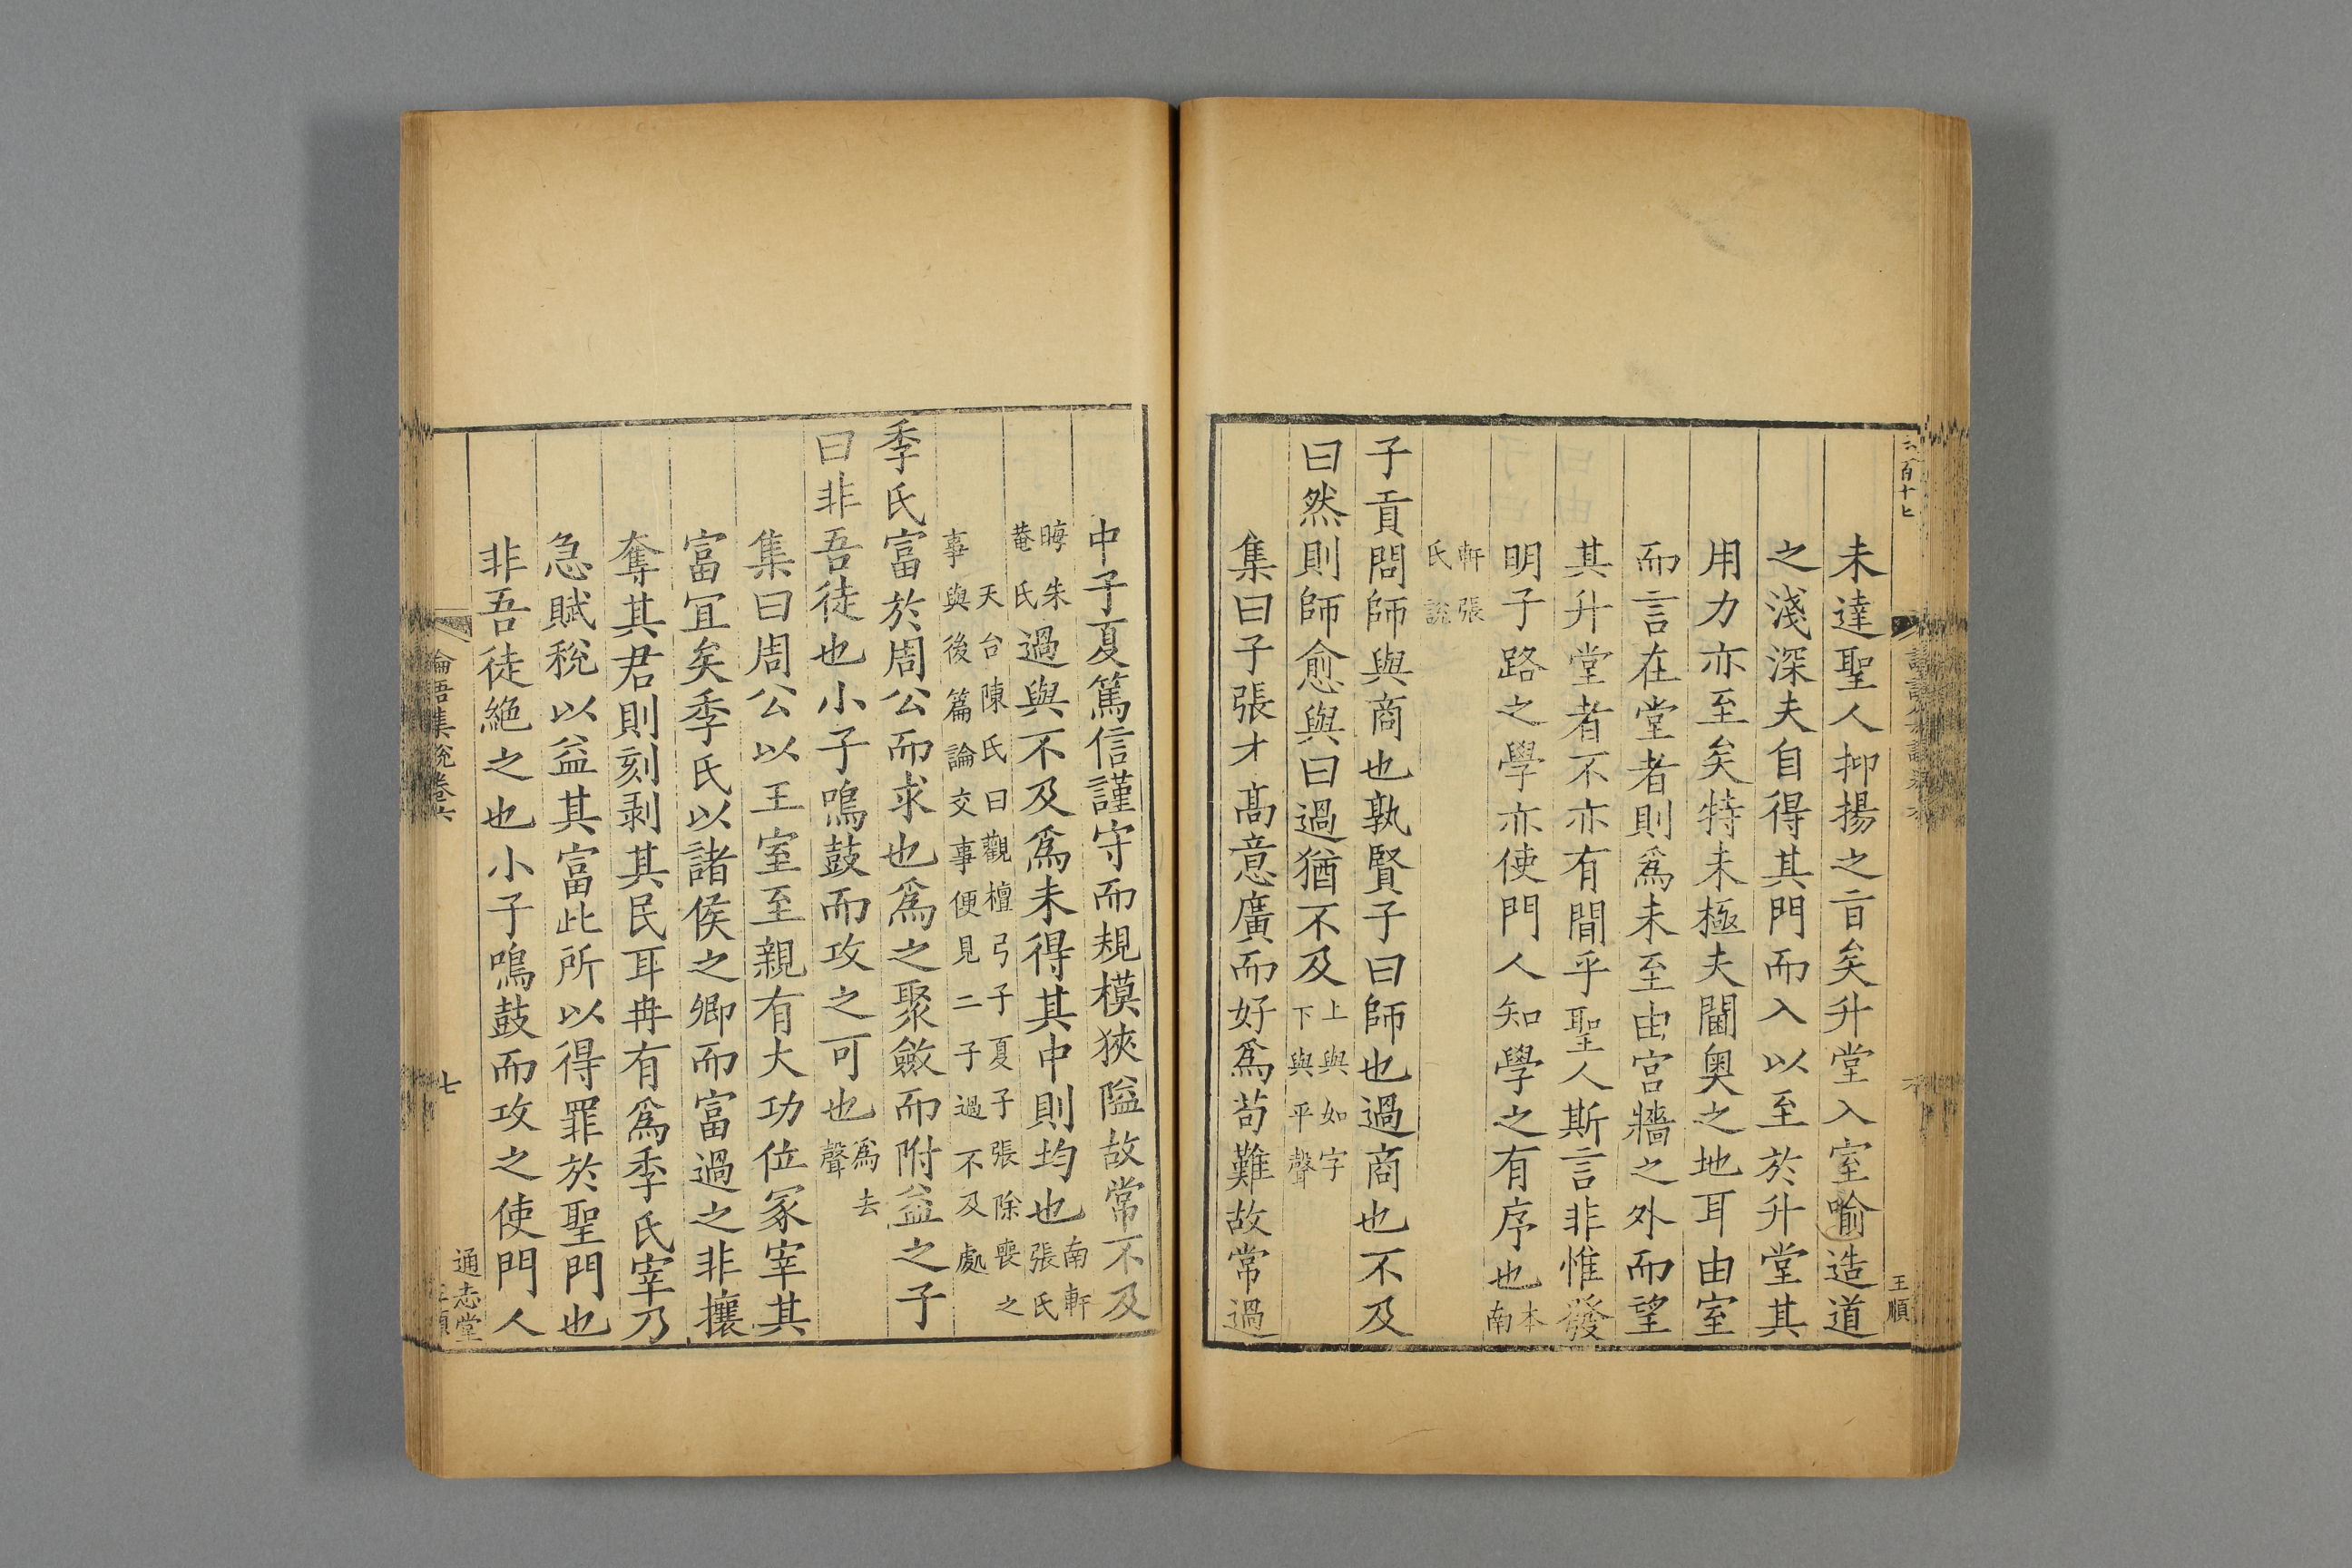 六百十七
王順
未達聖人抑揚之㫖矣升堂入室喻造道
之淺深夫自得其門而入以至於升堂其
用力亦至矣特未極夫閫奧之地耳由室
而言在堂者則為未至由宮牆之外而望
其升堂者不亦有間乎聖人斯言非惟發
明子路之學亦使門人知學之有序也本南
軒張氏說
子貢問師與商也孰賢子曰師也過商也不及
曰然則師愈與曰過猶不及上與如字下與平聲
集曰子張才髙意廣而好為苟難故常過
中子夏篤信謹守而規模狹隘故常不及
晦菴朱氏過與不及為未得其中則均也南軒張氏
天台陳氏曰觀檀弓子夏子張除喪之事與後篇論交事便見二子過不及處
季氏富於周公而求也為之聚斂而附益之子
曰非吾徒也小子鳴鼓而攻之可也為去聲
集曰周公以王室至親有大功位冢宰其
富宜矣季氏以諸侯之卿而富過之非攘
奪其君則刻剥其民耳冉有為季氏宰乃
急賦稅以益其富此所以得罪於聖門也
非吾徒絶之也小子鳴鼓而攻之使門人
論語集說卷六
七
通志堂